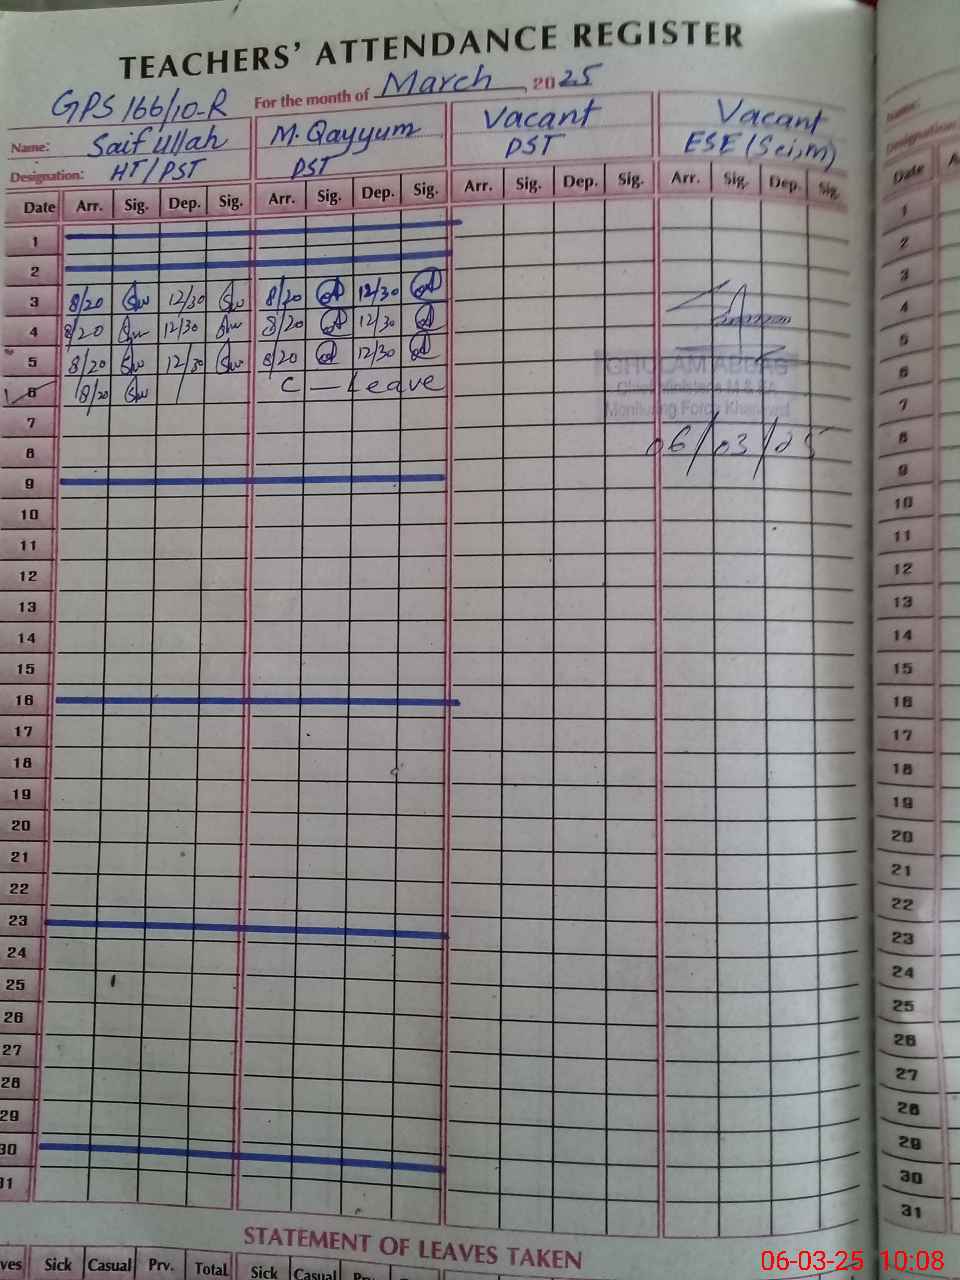 TEACHERS' ATTENDANCE REGISTER
GPS 166/10-R For the month of March, 2025
Name: Saif Ullah M. Qayyum Vacant Vacant
Designation: HT/PST PST PST ESE (Sci, m)
Date Arr. Sig. Dep. Sig. Arr. Sig. Dep. Sig. Arr. Sig. Dep. Sig. Arr. Sig. Dep. Sig. Date
1 1
2 2
3 8/20 12/30 8/20 12/30 3
4 8/20 12/30 8/20 12/30 4
5 8/20 12/30 8/20 12/30 5
6 8/20 C - Leave 6
GHULAM ABBAS
Monitoring Force
06/03/25
7 7
8 8
9 9
10 10
11 11
12 12
13 13
14 14
15 15
16 16
17 17
18 18
19 19
20 20
21 21
22 22
23 23
24 24
25 25
26 26
27 27
28 28
29 29
30 30
31 31
STATEMENT OF LEAVES TAKEN
ves Sick Casual Prv. Total Sick Casual
06-03-25 10:08